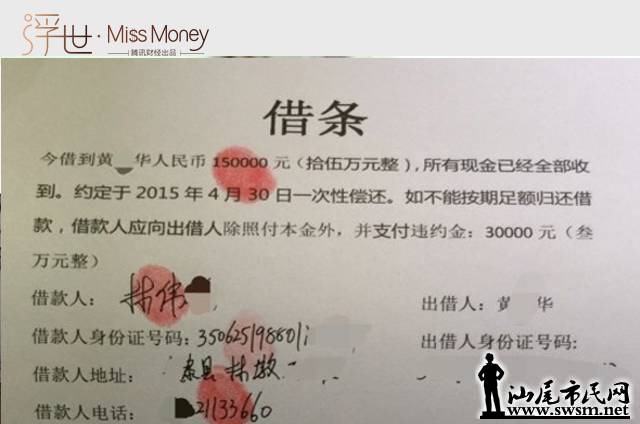 浮世·Miss Money
腾讯财经出品
借条
今借到黄 华人民币 150000 元（拾伍万元整），所有现金已经全部收
到。约定于 2015 年 4 月 30 日一次性偿还。如不能按期足额归还借
款，借款人应向出借人除照付本金外，并支付违约金：30000 元（叁
万元整）
借款人：林伟 出借人：黄 华
借款人身份证号码：35062519880 出借人身份证号码：
借款人地址：
借款人电话： 21133660
汕尾市民网
www.swsm.net